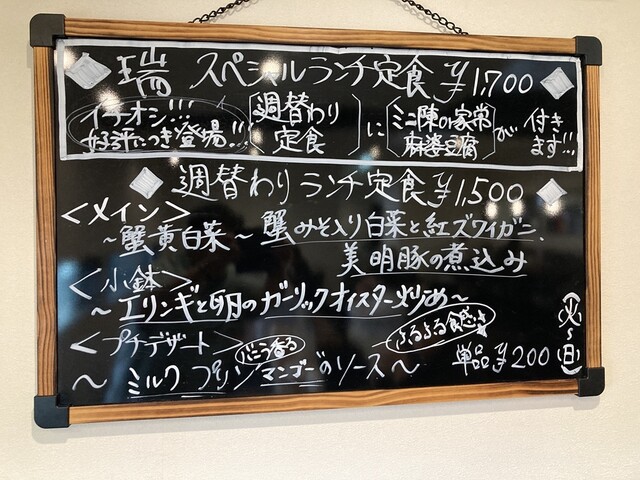 瑞 スペシャルランチ定食 ¥1,700
イチオシ!!! 好評につき登場!! 週替わり定食 に ミニ陳or家常麻婆豆腐 が 付きます!!!
週替わりランチ定食 ¥1,500
<メイン>
~蟹黄白菜~ 蟹みそ入り白菜と紅ズワイガニ、
美明豚の煮込み
<小鉢>
~エリンギと卵のガーリックオイスター炒め~
<プチデザート> バニラ香る ぷるぷる食感
~ミルクプリンマンゴーのソース~ 単品¥200
(火)~(日)